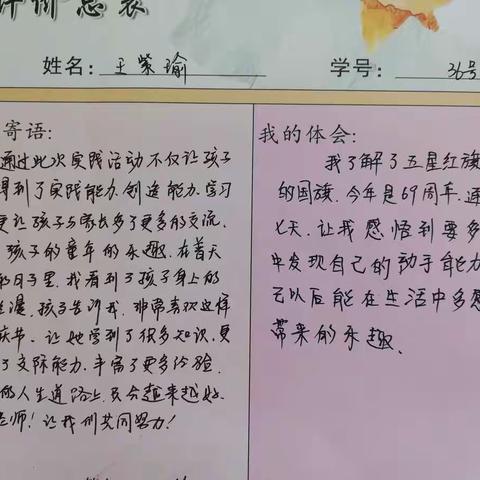 评价总表
姓名: 王紫瑜
学号: 36号
寄语:
通过此次实践活动不仅让孩子
得到了实践能力、创造能力、学习
更让孩子与家长多了更多的交流、
孩子的童年的乐趣、在普天
的日子里、我看到了孩子身上的
漫、孩子告诉我、非常喜欢这样
庆节、让她学到了很多知识、更
了交际能力、丰富了更多经验、
的人生道路上、会越来越好、
老师!让我们共同努力!
我的体会:
我了解了五星红旗
的国旗、今年是69周年、通
七天、让我感悟到要多
中发现自己的动手能力
以后能在生活中多感
带来的乐趣、